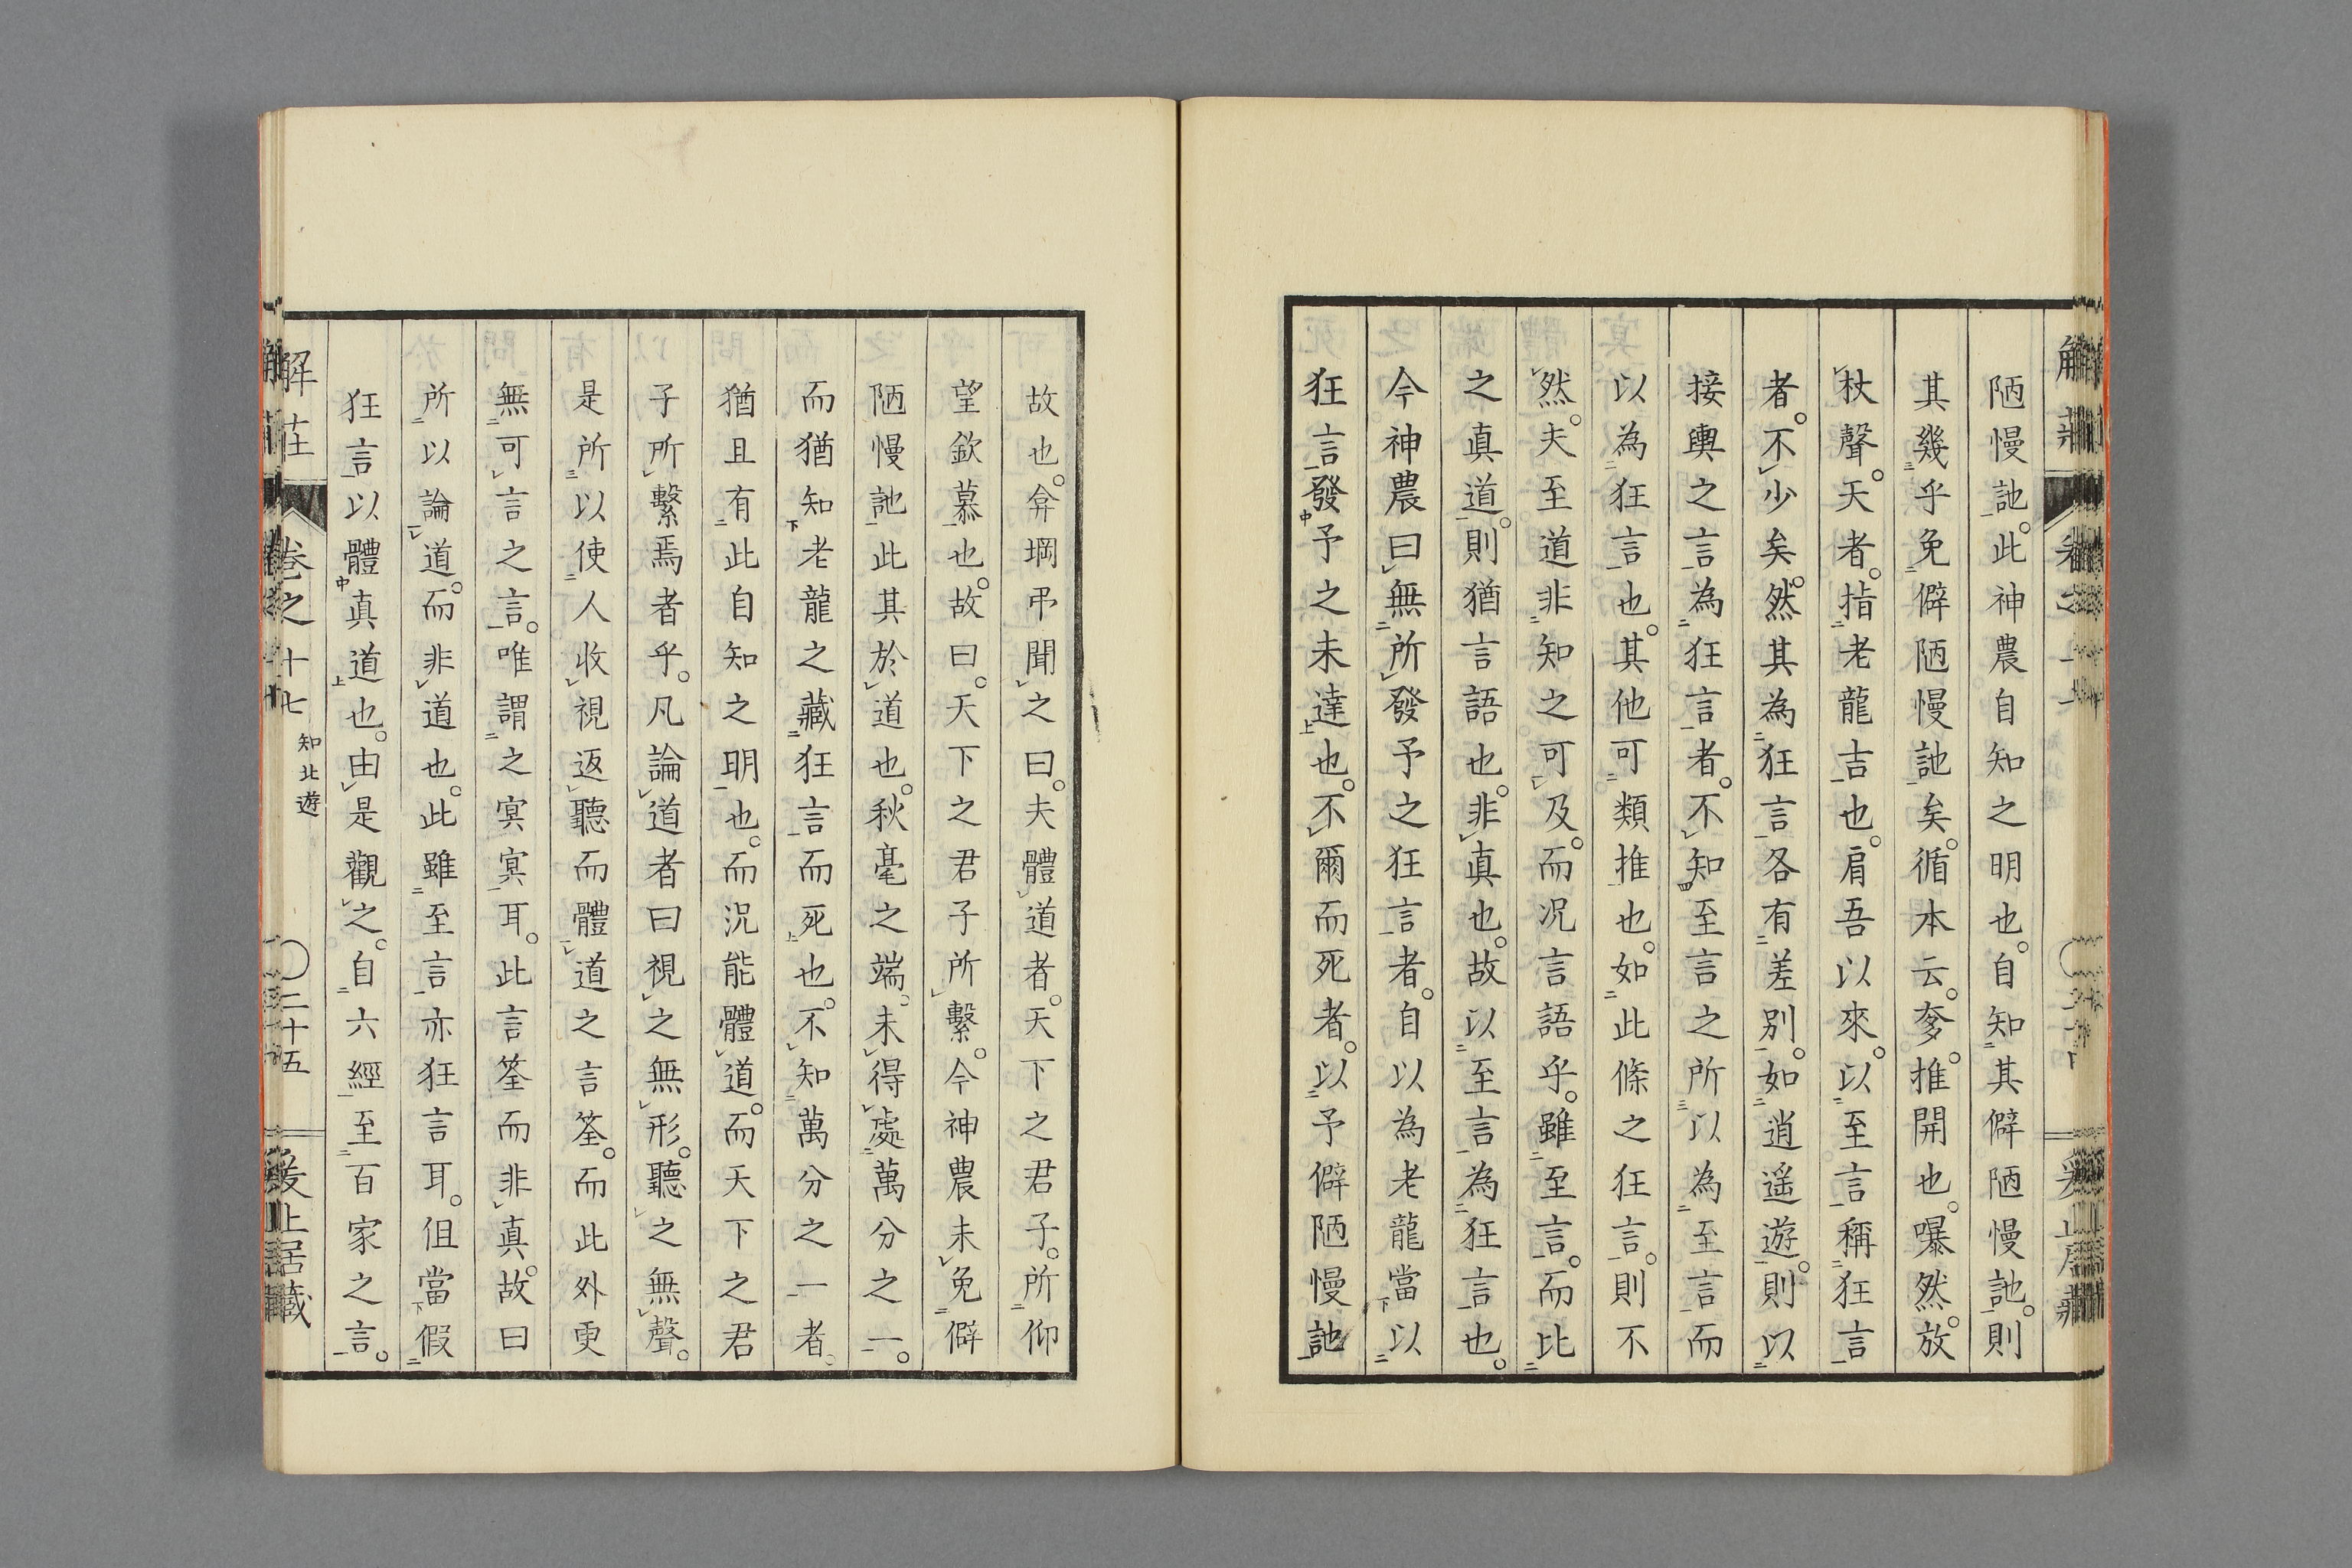 陋慢訑。此神農自知之明也。自知其僻陋慢訑。則
其幾乎免僻陋慢訑矣。循本云。奓。推開也。嚗然。放
杖聲。天者。指老龍吉也。肩吾以來。以至言稱狂言
者。不少矣。然其為狂言各有差別。如逍遥遊。則以
接輿之言為狂言者。不知至言之所以為至言而
以為狂言也。其他可類推也。如此條之狂言。則不
然。夫至道非知之可及。而况言語乎。雖至言。而比
之真道。則猶言語也。非真也。故以至言為狂言也。
今神農曰無所發予之狂言者。自以為老龍當以
狂言發予之未達也。不爾而死者。以予僻陋慢訑
故也。弇堈弔聞之曰。夫體道者。天下之君子。所仰
望欽慕也。故曰。天下之君子所繫。今神農未免僻
陋慢訑此其於道也。秋毫之端。未得處萬分之一。
而猶知老龍之藏狂言而死也。不知萬分之一者。
猶且有此自知之明也。而況能體道。而天下之君
子所繫焉者乎。凡論道者曰視之無形。聽之無聲。
是所以使人收視返聽而體道之言筌。而此外更
無可言之言。唯謂之冥冥耳。此言筌而非真。故曰
所以論道。而非道也。此雖至言亦狂言耳。但當假
狂言以體真道也。由是觀之。自六經至百家之言。
解莊
卷之十七
知北遊
二十五
爰止居藏